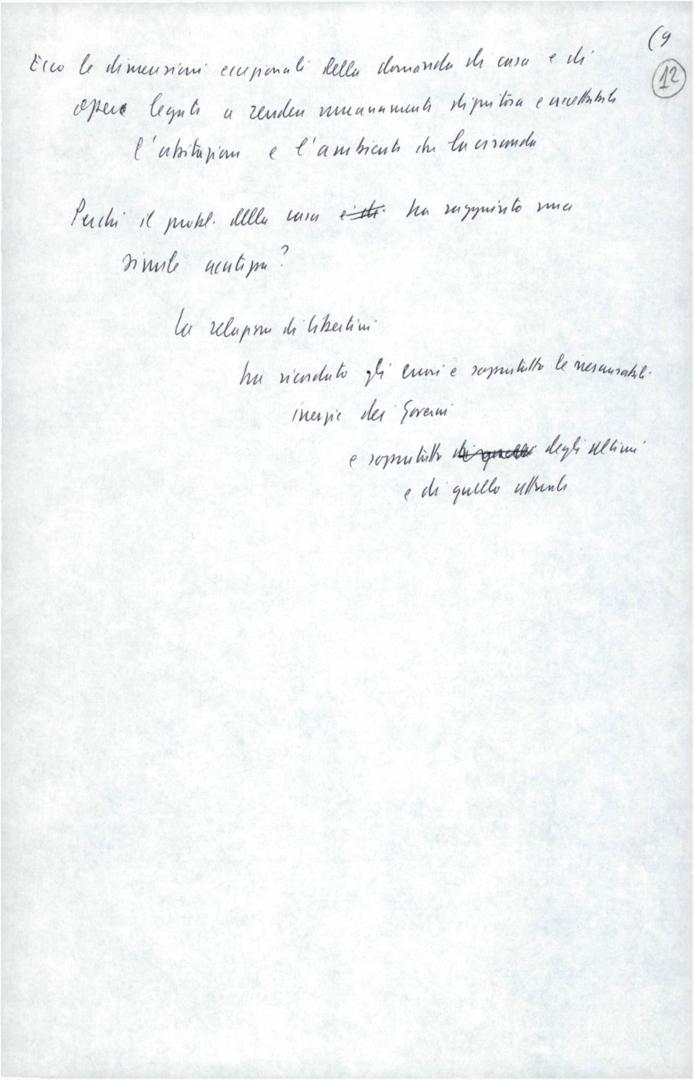 (9
12
Ecco le dimensioni eccezionali della domanda di casa e di
opere legate a rendere umanamente dignitosa e accettabile
l'abitazione e l'ambiente che la circonda
Perché il probl. della casa ha raggiunto una
simile acutezza?
La relazione di Libertini
ha ricordato gli errori e soprattutto le
inerzie dei Governi
e soprattutto degli ultimi
e di quello attuale